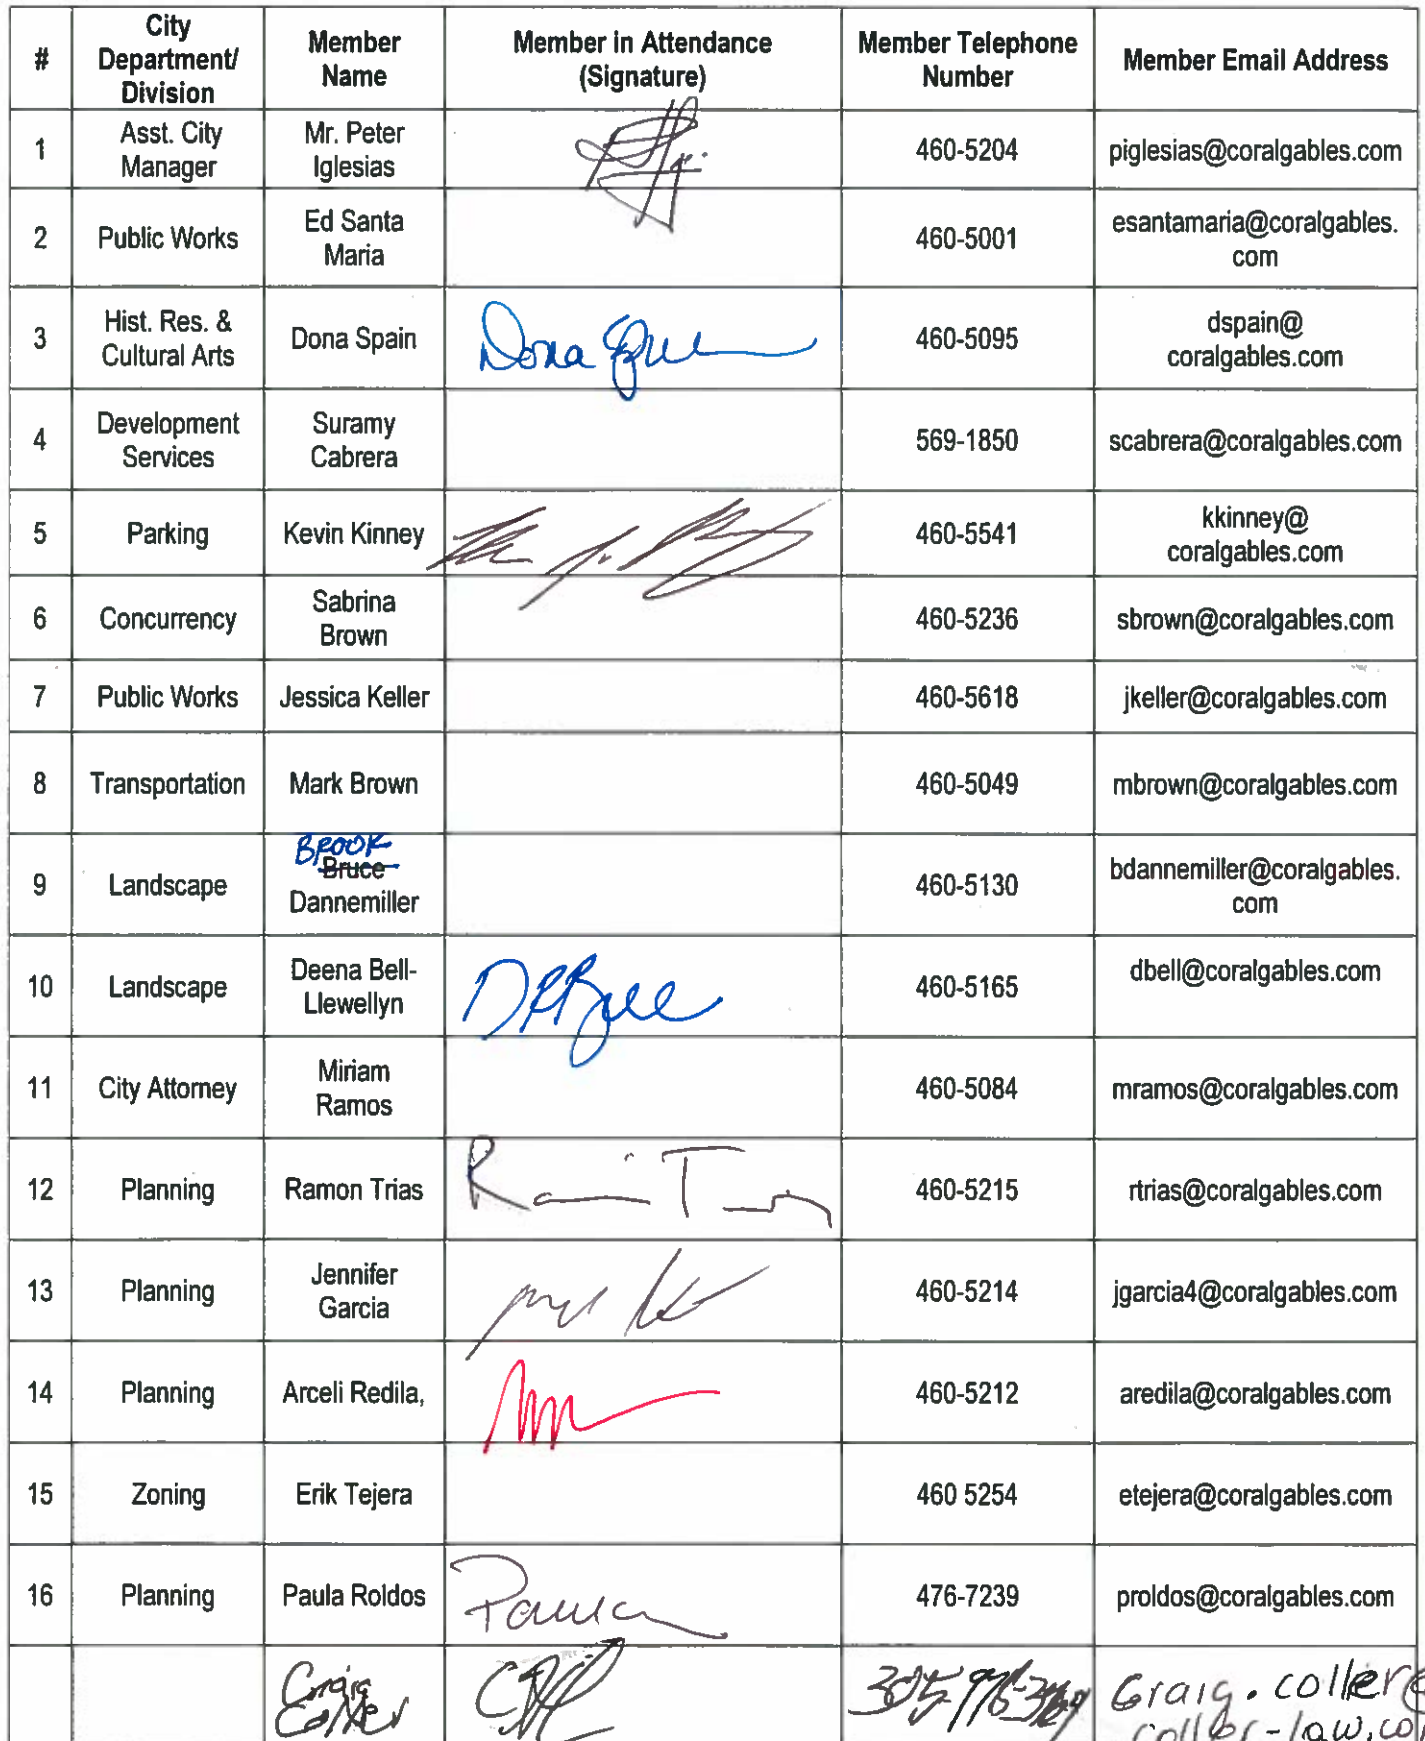 #
City Department/ Division
Member Name
Member in Attendance (Signature)
Member Telephone Number
Member Email Address
1
Asst. City Manager
Mr. Peter Iglesias
460-5204
piglesias@coralgables.com
2
Public Works
Ed Santa Maria
460-5001
esantamaria@coralgables.
com
3
Hist. Res. & Cultural Arts
Dona Spain
Dona
460-5095
dspain@
coralgables.com
4
Development Services
Suramy Cabrera
569-1850
scabrera@coralgables.com
5
Parking
Kevin Kinney
460-5541
kkinney@
coralgables.com
6
Concurrency
Sabrina Brown
460-5236
sbrown@coralgables.com
7
Public Works
Jessica Keller
460-5618
jkeller@coralgables.com
8
Transportation
Mark Brown
460-5049
mbrown@coralgables.com
9
Landscape
BROOK
Bruce
Dannemiller
460-5130
bdannemiller@coralgables.
com
10
Landscape
Deena Bell-
Llewellyn
460-5165
dbell@coralgables.com
11
City Attorney
Miriam Ramos
460-5084
mramos@coralgables.com
12
Planning
Ramon Trias
460-5215
rtrias@coralgables.com
13
Planning
Jennifer Garcia
460-5214
jgarcia4@coralgables.com
14
Planning
Arceli Redila,
460-5212
aredila@coralgables.com
15
Zoning
Erik Tejera
460 5254
etejera@coralgables.com
16
Planning
Paula Roldos
Paula
476-7239
proldos@coralgables.com
Craig
Coller
Craig.coller@
coller-law.co